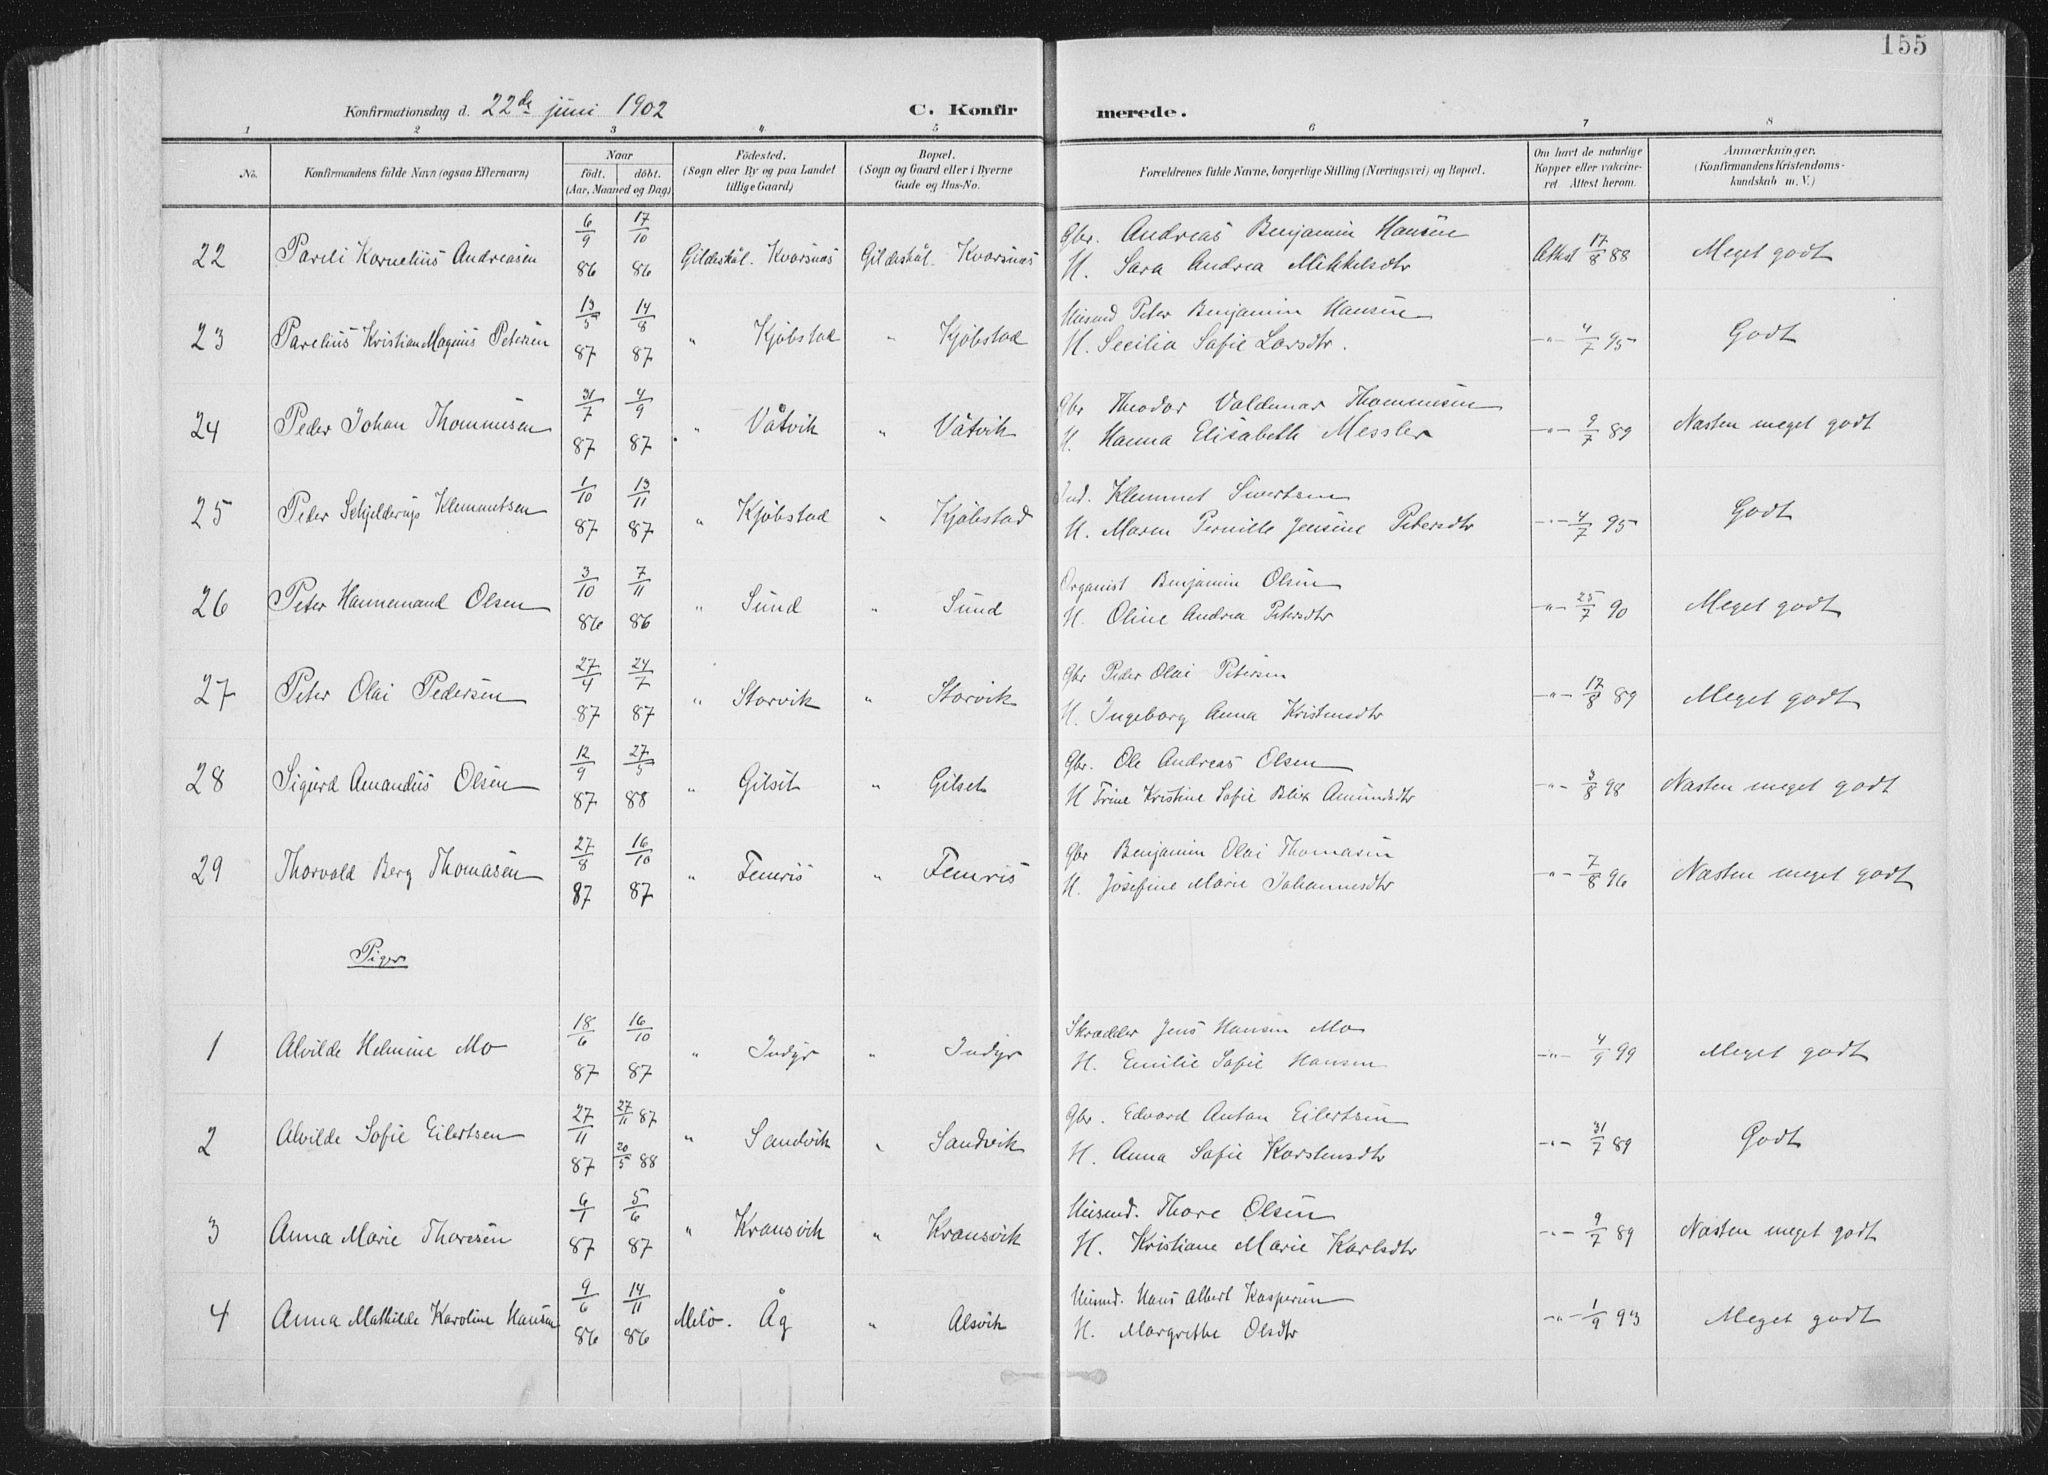 155
Konfirmationsdag d. 22de juni 1902
C. Konfirmerede.
1 2 3 4 5 6 7 8
No. Konfirmandens fulde Navn (ogsaa Efternavn) Naar födt. döbt. (Aar, Maaned og Dag) Födested. (Sogn eller By og paa Landet tillige Gaard) Bopæl. (Sogn og Gaard eller i Byerne Gade og Hus-No. Forældrenes fulde Navne, borgerlige Stilling (Næringsvei) og Bopæl. Om havt de naturlige Kopper eller vakcineret. Attest herom. Anmærkninger. (Konfirmandens Kristendomskundskab m. V.)
22 Pareli Kornelius Andreasen 6/9 86 17/10 86 Gildeskål. Kvarsnæs Gildeskål. Kvarsnæs Gbr. Andreas Benjamin Hansen
H. Sara Andrea Mikkelsdtr Attest 17/8 88 Meget godt
23 Parelius Kristian Magnus Petersen 13/5 87 14/8 87 " Kjøbstad " Kjøbstad Husmd Peter Benjamin Hansen
H. Secilia Sofie Larsdtr. -"- 4/7 95 Godt
24 Peder Johan Thommesen 31/7 87 4/9 87 " Våtvik " Våtvik Gbr Theodor Valdemar Thommesen
H. Hanna Elisabeth Messler -"- 9/7 89 Næsten meget godt
25 Peder Schjelderup Klemmetsen 1/10 87 13/11 87 " Kjøbstad " Kjøbstad Ind. Klemmet Sivertsen
H. Maren Pernille Jensine Petersdtr -"- 4/7 95 Godt
26 Peter Hannemand Olsen 3/10 86 7/11 86 " Sund " Sund Organist Benjamin Olsen
H. Oline Andrea Petersdtr -"- 25/7 90 Meget godt
27 Peter Olai Pedersen 27/4 87 24/7 87 " Storvik " Storvik Gbr Peder Olai Petersen
H. Ingeborg Anna Kristensdtr -"- 17/8 89 Meget godt
28 Sigurd Amandus Olsen 12/9 87 27/5 88 " Gilset " Gilset Gbr. Ole Andreas Olsen
H Trine Kristine Sofie Blix Amundsdtr -"- 3/8 98 Næsten meget godt
29 Thorvald Berg Thomasen 27/8 87 16/10 87 " Femris " Femris Gbr Benjamin Olai Thomasen
H. Josefine Marie Johannesdtr -"- 7/8 96 Næsten meget godt
Piger
1 Alvilde Helmine Mo 18/6 87 16/10 87 " Indyr " Indyr Skrædder Jens Hansen Mo
H. Emilie Sofie Hansen -"- 4/9 99 Meget godt
2 Alvilde Sofie Eilertsen 27/11 87 27/11 87 20/5 88 " Sandvik " Sandvik Gbr. Edvard Anton Eilertsen
H. Anna Sofie Karstensdtr -"- 31/7 89 Godt
3 Anna Marie Thoresen 6/1 87 5/6 87 " Kransvik " Kransvik Husmd. Thore Olsen
H. Kristiane Marie Karlsdtr -"- 9/7 89 Næsten meget godt
4 Anna Mathilde Karoline Hansen 9/6 86 14/11 86 Melö. Åg " Alsvik Husmd. Hans Albert Kaspersen
H. Margrethe Olsdtr -"- 1/9 93 Meget godt